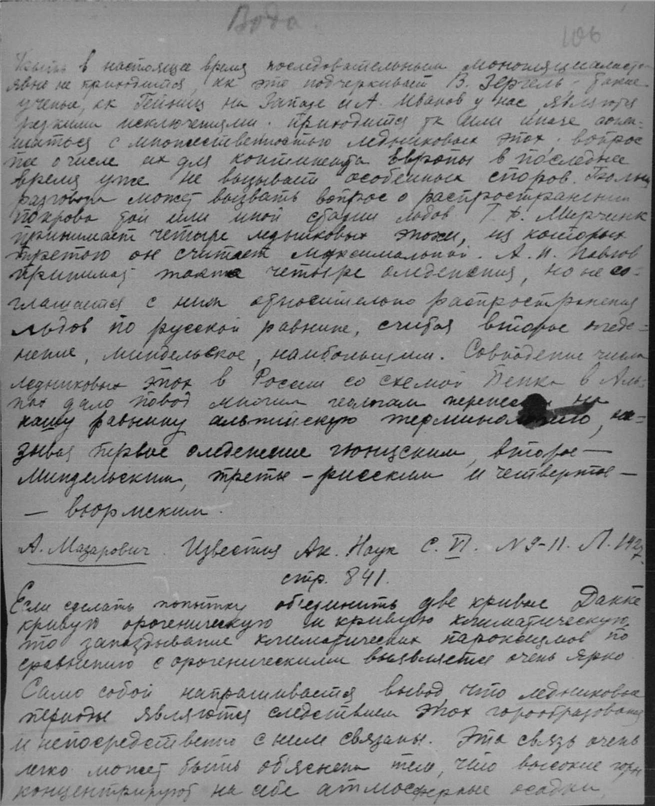 Вода.
106
в настоящее время последовательным мономляциалистом
явно не приходится, кк это подчеркивает В. Гергель. Такие
ученые, кк Гейниц на Западе и А. Иванов у нас, являются
редкими исключениями. Приходится так или иначе согла-
шаться с множественностью ледниковых эпох, вопрос
же о числе их для континента Европы в последнее
время уже не вызывает особенных споров. Больше
разговора может вызвать вопрос о распространении
покрова той или иной стадии льдов Г. Ф. Мирчинк
принимает четыре ледниковых эпохи, из которых
третью он считает максимальной. А. П. Павлов
принимает также четыре оледенения, но не со-
глашается с ним относительно распространения
льдов по русской равнине, считая второе оледе-
нение, миндельское, наибольшим. Совпадение числа
ледниковых эпох в России со схемой Пенка в Аль-
пах дало повод многим геологам перенести на
нашу равнину альпийскую терминологию, на-
зывая первое оледенение гюнцским, второе —
миндельским, третье – рисским и четвертое –
– вюрмским.
А. Мазарович. Известия Ак. Наук С. VI. N 9-11. Л. 1927.
стр. 841.
Если сделать попытку объединить две кривые Дакке
кривую орогеническую и кривую климатическую,
то запаздывание климатических пароксизмов по
сравнению с орогеническими выявляется очень ярко.
Само собой напрашивается вывод что ледниковые
периоды являются следствием эпох горообразования
и непосредственно с ними связаны. Эта связь очень
легко может быть объяснена тем, что высокие горы
концентрируют на себе атмосферные осадки,